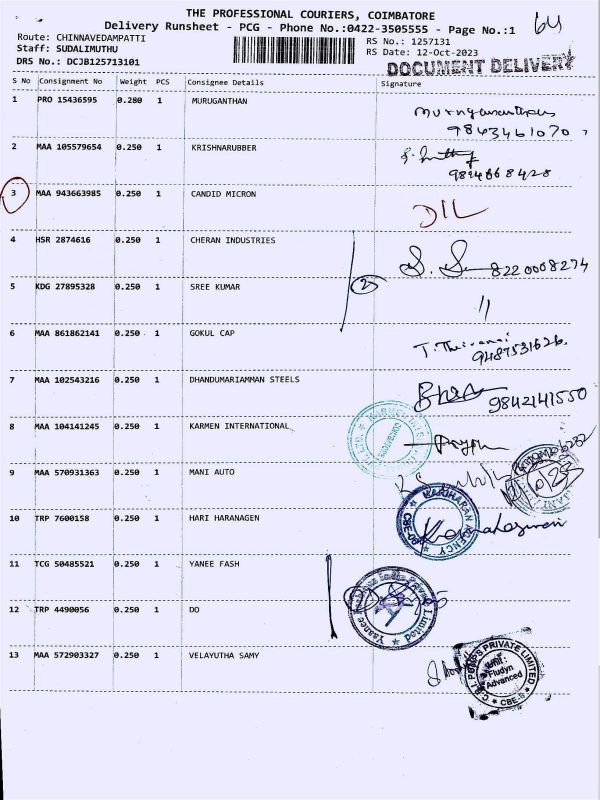 THE PROFESSIONAL COURIERS, COIMBATORE
Delivery Runsheet - PCG - Phone No.:0422-3505555 - Page No.:1
64
Route: CHINNAVEDAMPATTI
RS No.: 1257131
Staff: SUDALIMUTHU
RS Date: 12-Oct-2023
DRS No.: DCJB125713101
DOCUMENT DELIVERY
S No Consignment No Weight PCS Consignee Details Signature
1 PRO 15436595 0.280 1 MURUGANTHAN
9843461070
2 MAA 105579654 0.250 1 KRISHNARUBBER
3 MAA 943663985 0.250 1 CANDID MICRON DIL
4 HSR 2874616 0.250 1 CHERAN INDUSTRIES
8220008274
5 KDG 27895328 0.250 1 SREE KUMAR 2 "
6 MAA 861862141 0.250 1 GOKUL CAP
9487531626
7 MAA 102543216 0.250 1 DHANDUMARIAMMAN STEELS 9842141550
8 MAA 104141245 0.250 1 KARMEN INTERNATIONAL
9 MAA 570931363 0.250 1 MANI AUTO
12/10/23
10 TRP 7600158 0.250 1 HARI HARANAGEN
HARIHARAN AGENCY
11 TCG 50485521 0.250 1 YANEE FASH
12 TRP 4490056 0.250 1 DO
Private Limited
13 MAA 572903327 0.250 1 VELAYUTHA SAMY
C.R.I. PUMPS PRIVATE LIMITED
Unit:
Fludyn
Advanced
CBE-5